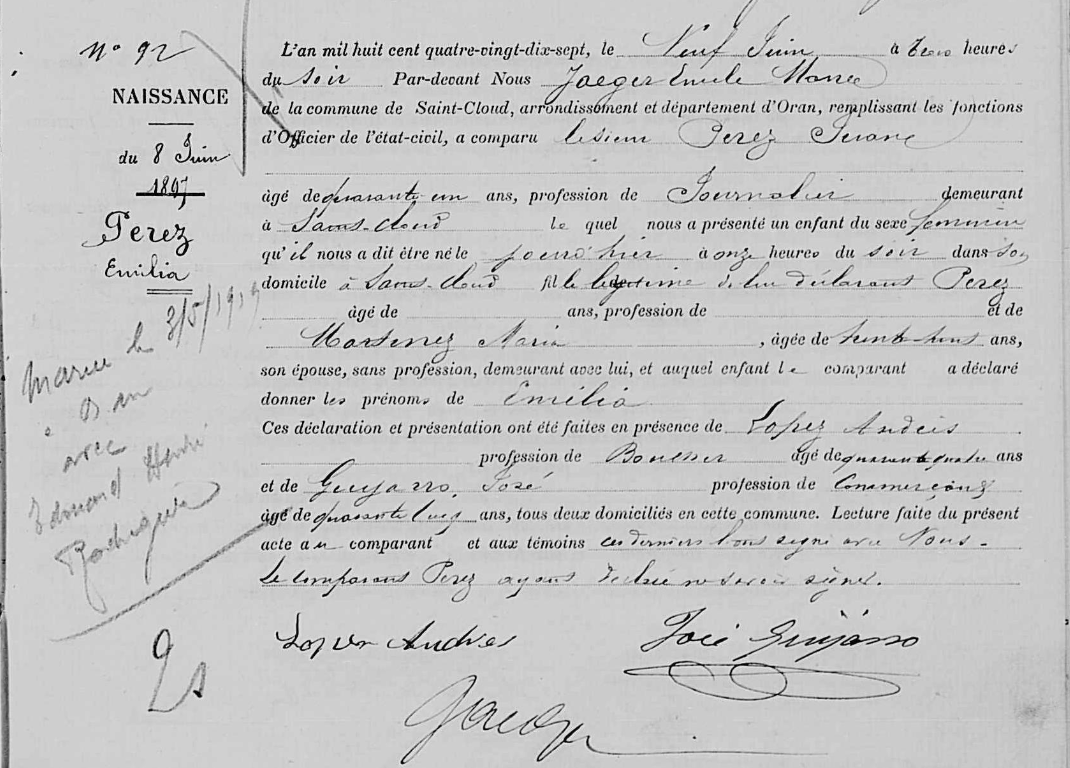 N° 92
NAISSANCE
du 8 Juin
1897
Perez
Emilia
Marié le 3/5/1919
à Oran
avec
Edouard Henri
Rodriguez
L'an mil huit cent quatre-vingt-dix-sept, le Neuf Juin à trois heures
du soir Par-devant Nous Jaeger Emile Maire
de la commune de Saint-Cloud, arrondissement et département d'Oran, remplissant les fonctions
d'Officier de l'état-civil, a comparu le sieur Perez Juan
âgé de quarante-un ans, profession de Journalier demeurant
à Saint-Cloud le quel nous a présenté un enfant du sexe féminin
qu'il nous a dit être né le jourd'hier à onze heures du soir dans son
domicile à Saint-Cloud fille légitime de lui déclarant Perez
âgé de ans, profession de et de
Martinez Maria, âgée de trente-huit ans,
son épouse, sans profession, demeurant avec lui, et auquel enfant le comparant a déclaré
donner les prénoms de Emilia
Ces déclaration et présentation ont été faites en présence de Lopez Andrés
profession de âgé de quarante quatre ans
et de Guijarro, José profession de Commerçant
âgé de quarante ans, tous deux domiciliés en cette commune. Lecture faite du présent
acte au comparant et aux témoins ces derniers l'ont signé avec Nous.
Le comparant Perez ayant déclaré ne savoir signer.
Lopez Andres
José Guijarro
Jaeger